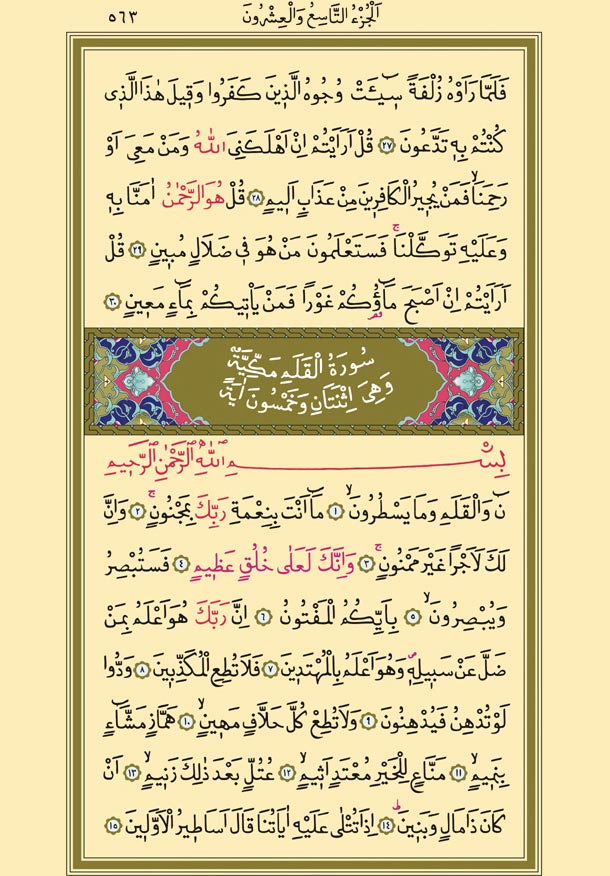 اَلْجُزْءُ التَّاسِعُ وَالْعِشْرُونَ
٥٦٣
فَلَمَّا رَاَوْهُ زُلْفَةً سٖٓيـَٔتْ وُجُوهُ الَّذٖينَ كَفَرُوا وَقٖيلَ هٰذَا الَّذٖى
كُنْتُمْ بِهٖ تَدَّعُونَ ﴿٢٧﴾ قُلْ اَرَاَيْتُمْ اِنْ اَهْلَكَنِىَ اللّٰهُ وَمَنْ مَعِىَ اَوْ
رَحِمَنَاۙ فَمَنْ يُجٖيرُ الْكَافِرٖينَ مِنْ عَذَابٍ اَلٖيمٍ ﴿٢٨﴾ قُلْ هُوَ الرَّحْمٰنُ اٰمَنَّا بِهٖ
وَعَلَيْهِ تَوَكَّلْنَاۚ فَسَتَعْلَمُونَ مَنْ هُوَ فٖى ضَلَالٍ مُبٖينٍ ﴿٢٩﴾ قُلْ
اَرَاَيْتُمْ اِنْ اَصْبَحَ مَٓاؤُ۬كُمْ غَوْرًا فَمَنْ يَاْتٖيكُمْ بِمَٓاءٍ مَعٖينٍ ﴿٣٠﴾
سُورَةُ الْقَلَمِ مَكِّيَّةٌ
وَهِىَ اِثْنَتَانِ وَخَمْسُونَ اٰيَةً
بِسْمِ اللّٰهِ الرَّحْمٰنِ الرَّحٖيمِ
نٓ وَالْقَلَمِ وَمَا يَسْطُرُونَۙ ﴿١﴾ مَٓا اَنْتَ بِنِعْمَةِ رَبِّكَ بِمَجْنُونٍۚ ﴿٢﴾ وَاِنَّ
لَكَ لَاَجْرًا غَيْرَ مَمْنُونٍۚ ﴿٣﴾ وَاِنَّكَ لَعَلٰى خُلُقٍ عَظٖيمٍ ﴿٤﴾ فَسَتُبْصِرُ
وَيُبْصِرُونَۙ ﴿٥﴾ بِاَيِّكُمُ الْمَفْتُونُ ﴿٦﴾ اِنَّ رَبَّكَ هُوَ اَعْلَمُ بِمَنْ
ضَلَّ عَنْ سَبٖيلِهٖࣕ وَهُوَ اَعْلَمُ بِالْمُهْتَدٖينَ ﴿٧﴾ فَلَا تُطِعِ الْمُكَذِّبٖينَ ﴿٨﴾ وَدُّوا
لَوْ تُدْهِنُ فَيُدْهِنُونَ ﴿٩﴾ وَلَا تُطِعْ كُلَّ حَلَّافٍ مَهٖينٍۙ ﴿١٠﴾ هَمَّازٍ مَشَّٓاءٍ
بِنَمٖيمٍۙ ﴿١١﴾ مَنَّاعٍ لِلْخَيْرِ مُعْتَدٍ اَثٖيمٍۙ ﴿١٢﴾ عُتُلٍّ بَعْدَ ذٰلِكَ زَنٖيمٍۙ ﴿١٣﴾ اَنْ
كَانَ ذَا مَالٍ وَبَنٖينَؕ ﴿١٤﴾ اِذَا تُتْلٰى عَلَيْهِ اٰيَاتُنَا قَالَ اَسَاطٖيرُ الْاَوَّلٖينَ ﴿١٥﴾